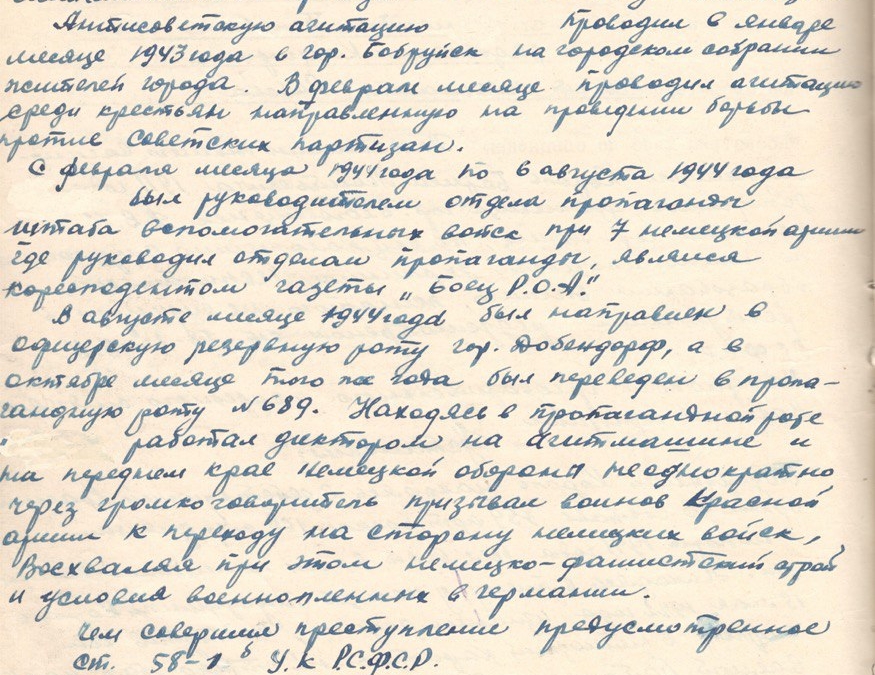 Антисоветскую агитацию проводил в январе
месяце 1943 года в гор. Бобруйск на городском собрании
жителей города. В феврале месяце проводил агитацию
среди крестьян направленную на проведении борьбы
против советских партизан.
С февраля месяца 1944 года по 6 августа 1944 года
был руководителем отдела пропаганды
штаба вспомогательных войск при 7 немецкой армии
где руководил отделом пропаганды, являлся
коресподентом газеты „Боец Р.О.А."
В августе месяце 1944 года был направлен в
офицерскую резервную роту гор. Добендорф, а в
октябре месяце того же года был переведен в пропа-
гандную роту № 689. Находясь в пропагандной роте
работал диктором на агитмашине и
на переднем крае немецкой обороны неоднократно
через громкоговоритель призывал воинов Красной
армии к переходу на сторону немецких войск,
Восхваляя при этом немецко-фашистский строй
и условия военнопленных в германии.
чем совершил преступление предусмотренное
ст. 58-1 б У.К Р.С.Ф.С.Р.